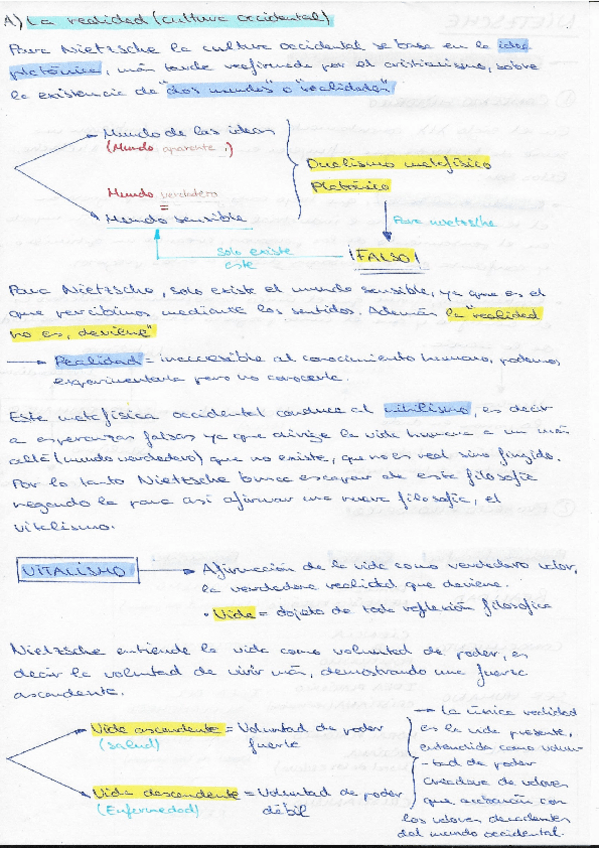 A) La realidad (cultura occidental)
Para Nietzsche la cultura occidental se basa en la idea
platónica, más tarde reafirmada por el cristianismo, sobre
la existencia de "dos mundos" o "realidades"
Mundo de las ideas
(Mundo aparente)
Mundo verdadero
=
Mundo sensible
Dualismo metafísico
Platónico
Para Nietzsche
¡FALSO!
solo existe
este
Para Nietzsche, solo existe el mundo sensible, ya que es el
que percibimos mediante los sentidos. Además la "realidad
no es, deviene"
Realidad = inaccesible al conocimiento humano, podemos
experimentarla pero no conocerla.
Esta metafísica occidental conduce al nihilismo, es decir
a esperanzas falsas ya que dirige la vida humana a un más
allá (mundo verdadero) que no existe, que no es real sino fingido.
Por lo tanto Nietzsche busca escapar de esta filosofía
negandola para así afirmar una nueva filosofía, el
vitalismo.
VITALISMO
Afirmación de la vida como verdadero valor,
la verdadera realidad que deviene.
• Vida = objeto de toda reflexión filosófica
Nietzsche entiende la vida como voluntad de poder, es
decir la voluntad de vivir más, demostrando una fuerza
ascendente.
Vida ascendente = Voluntad de poder
(Salud) fuerte
Vida descendente = Voluntad de poder
(Enfermedad) débil
La única realidad
es la vida presente,
entendida como volun-
-tad de poder
creadora de valores
que acabarán con
los valores decadentes
del mundo occidental.